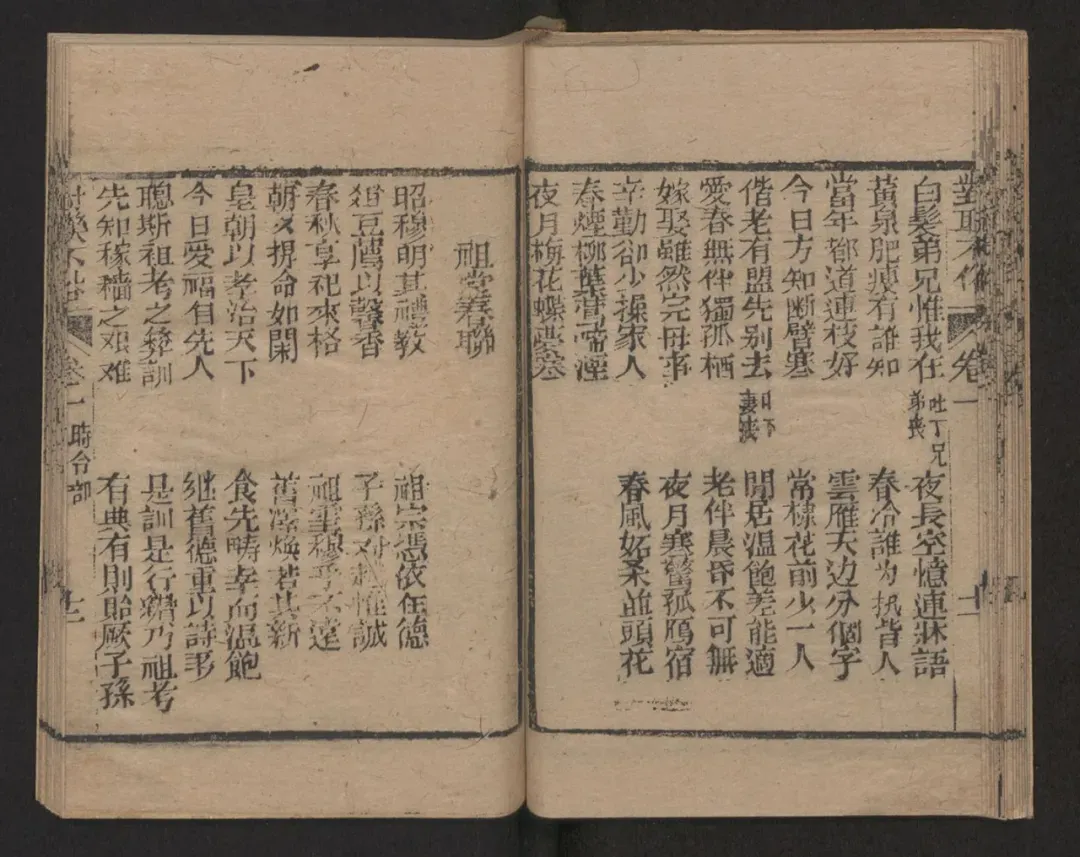 對聯不俗 卷一
白髮弟兄惟我在 吐丁兄弟喪 夜長空憶連牀語
黃泉肥瘦有誰知 春冷誰为執皆人
當年都道連枝好 雲雁天边分個字
今日方知断臂寒 常棣花前少一人
偕老有盟先别去 以下妻喪 閒居温飽差能適
愛春無伴獨孤栖 老伴晨昏不可無
嫁娶雖然完母事 夜月寒驚孤鴈宿
辛勤卻少操家人 春風妬柔並頭花
春煙柳葉
夜月梅花蝶夢寒
十二
祖堂春聯
昭穆明其禮教 祖宗憑依在德
俎豆薦以馨香 子孫对越惟誠
春秋享祀來格 祖雲穆乎不遠
朝夕捐命如閑 舊澤煥若其新
皇朝以孝治天下 食先疇幸而温飽
今日愛福自先人 继舊德重以詩书
聰斯祖考之彝訓 是訓是行纘乃祖考
先知稼穡之艰难 有典有則貽厥子孫
卷一 時令部
十二